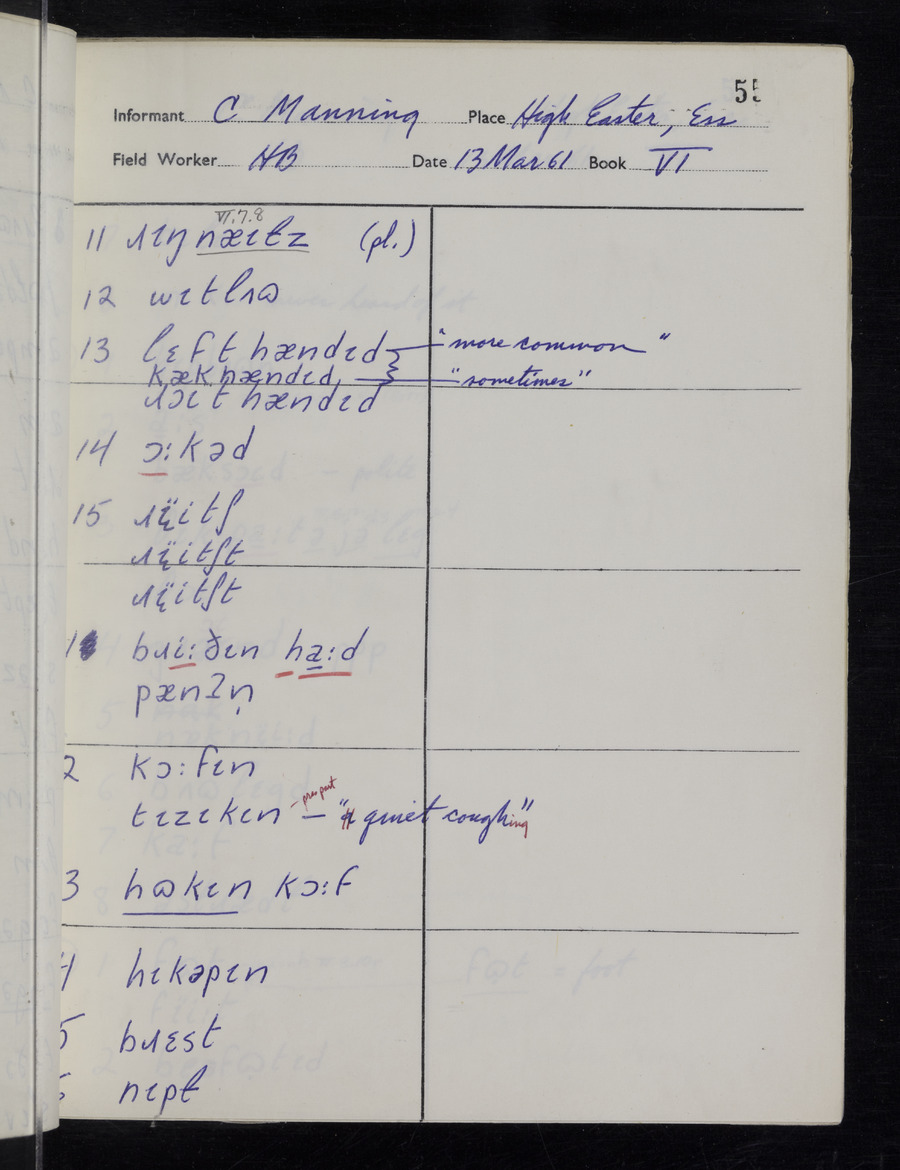 55
Informant C Manning Place High Easter, Ess
Field Worker HB Date 13 Mar 61 Book VI
VI.7.8
11 ɹɪŋ næɪlz (pl.)
12 wɪtlɹɷ
13 lɛft hændɪd "more common"
kækhændɪd "sometimes"
ɹɔɪt hændɪd
14 ɔ:kəd
15 ɹïitʃ
ɹïitʃt
ɹïitʃt
1 bɹi:ðɪn ha:d
pænʔn̩
2 kɔ:fɪn
tɪzɪkɪn – pres part – "quiet coughing"
3 hɷkɪn kɔ:f
4 hɪkəpɪn
5 bɹɛst
nɪpl